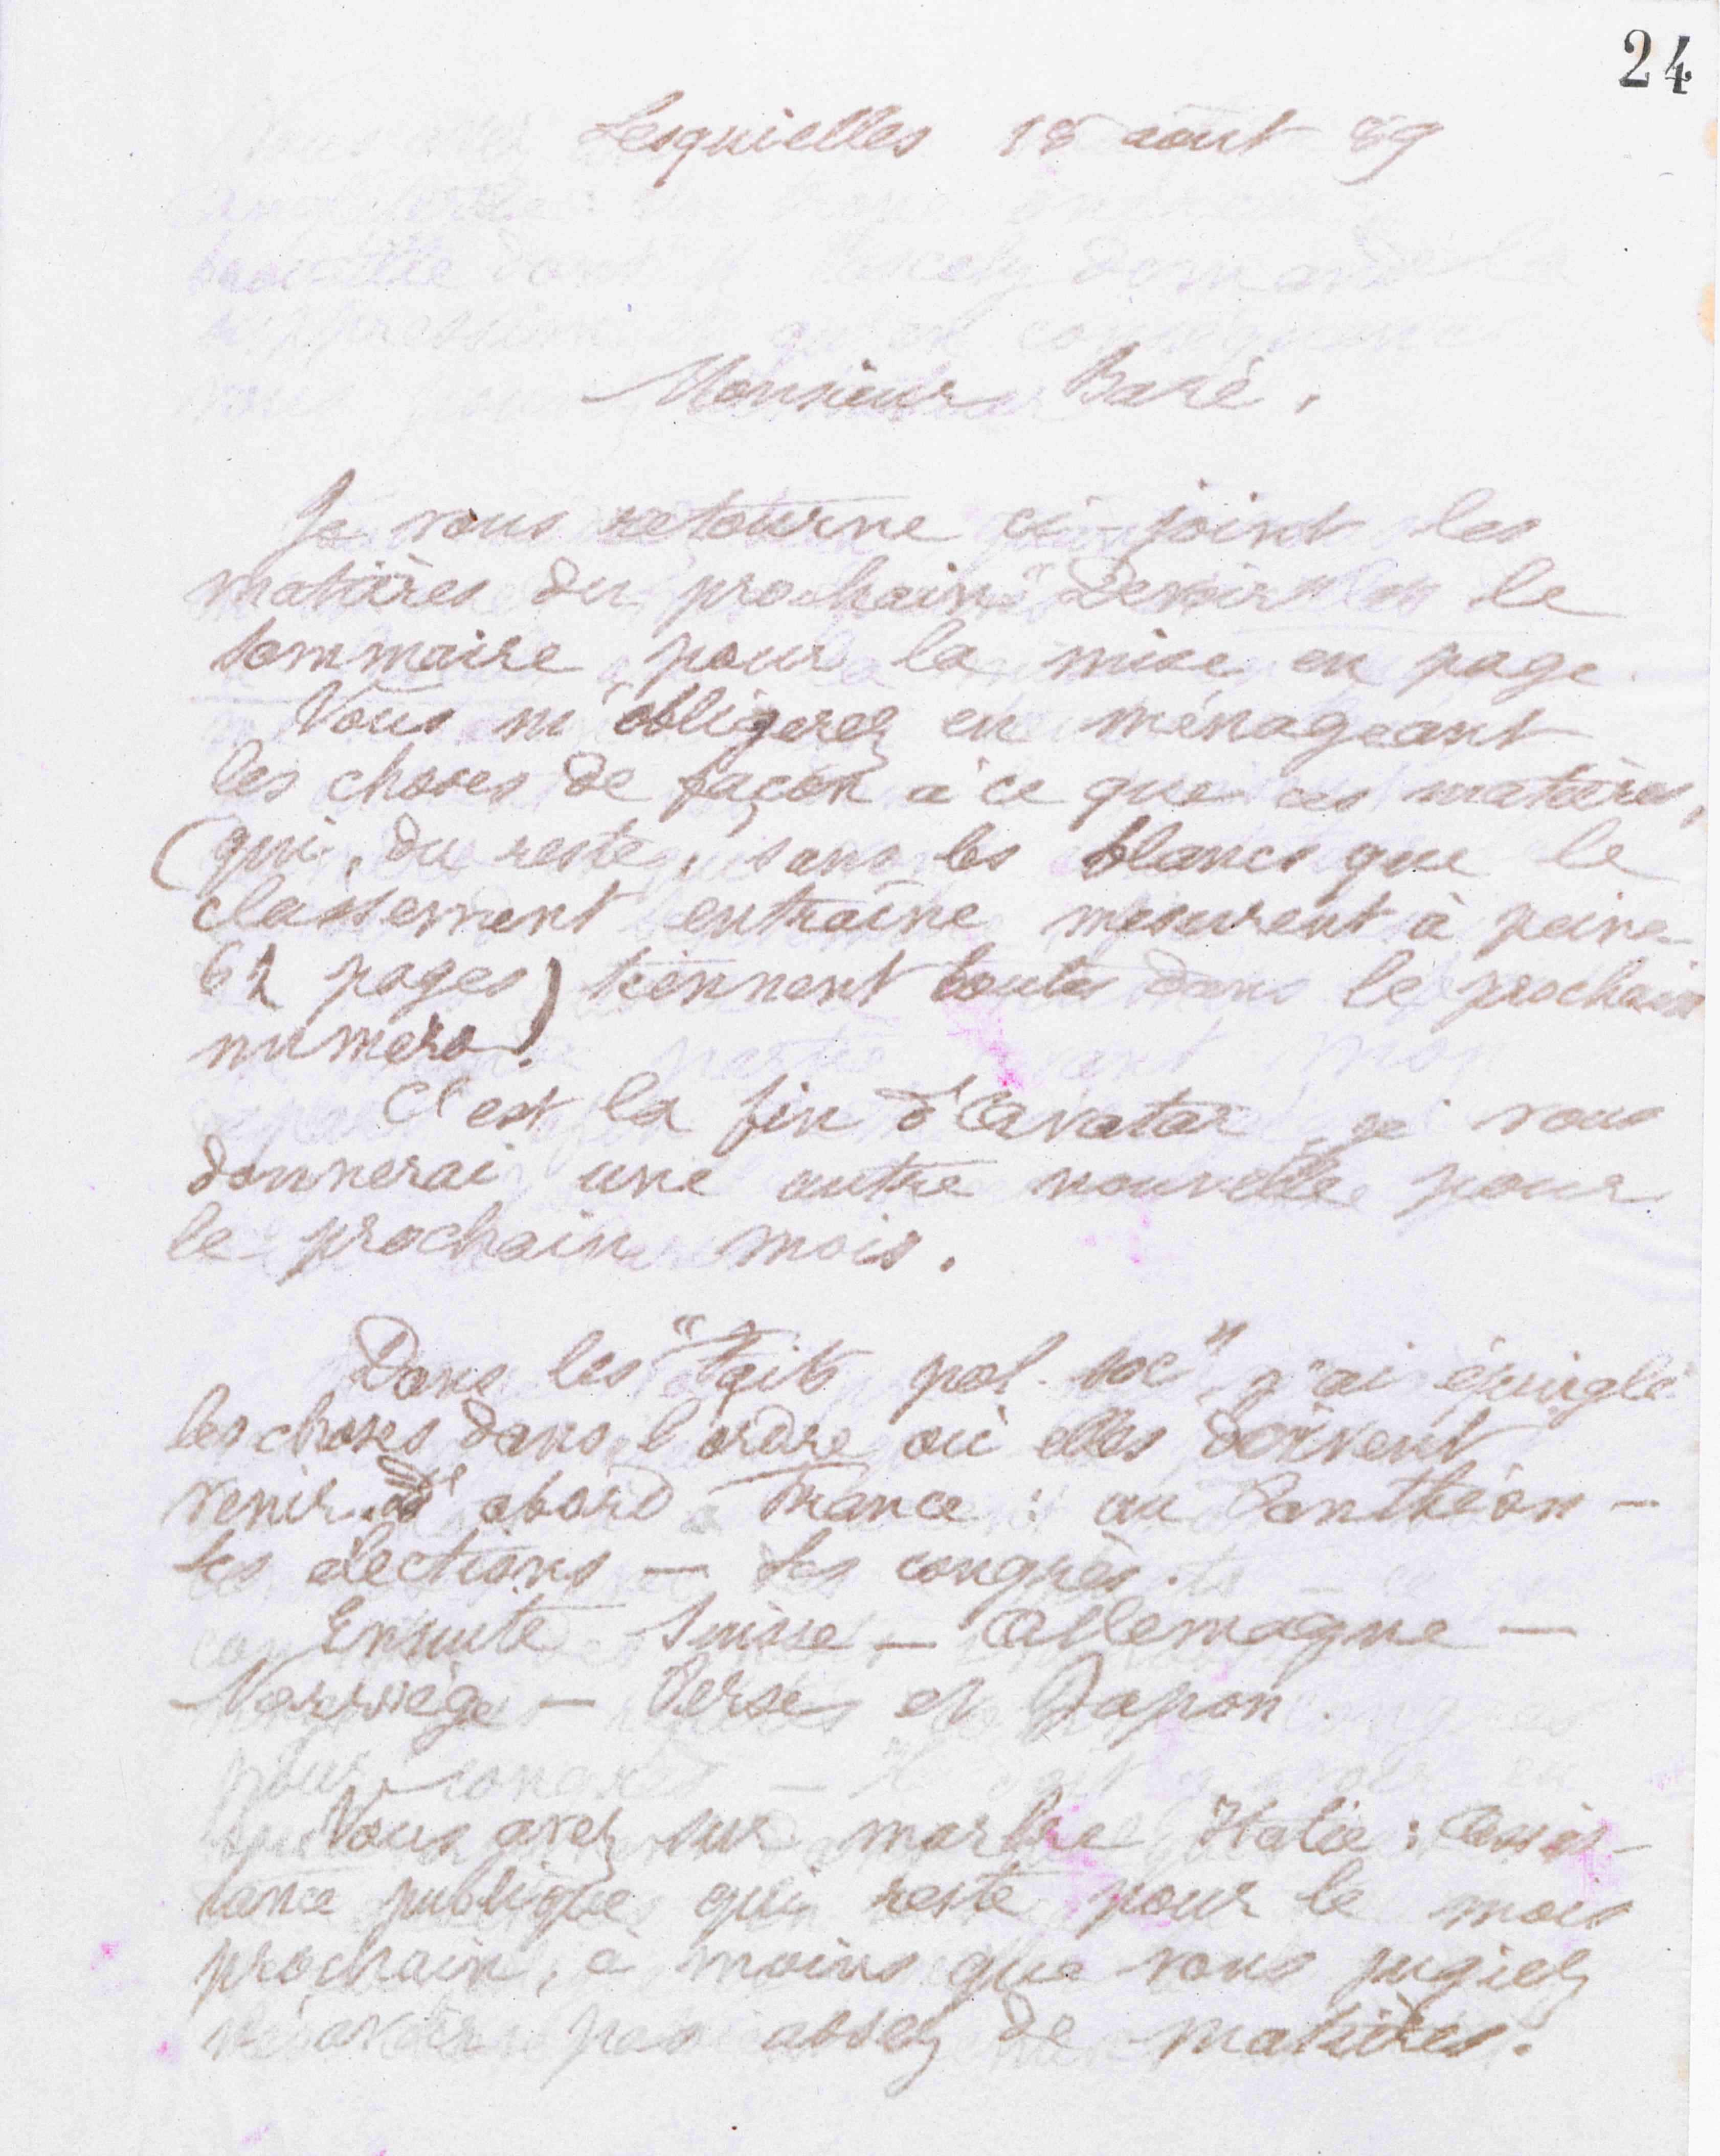 24
Lesquielles 18 août 89
Monsieur Baré,
Je vous retourne ci-joint les
matières du prochain "Devoir" le
sommaire pour la mise en page
Vous m'obligerez en ménageant
les choses de façon à ce que ces matières,
(qui, du reste, sans les blancs que le
classement entraîne mesurent à peine
62 pages) tiennent toutes dans le prochain
numéro.
C'est la fin d'Avatar, je vous
donnerai une autre nouvelle pour
le prochain mois.
Dans les "Faits pol. soc" j'ai épinglé
les choses dans l'ordre où elles doivent
venir. D'abord France : au Panthéon –
les élections – les congrès.
Ensuite Suisse – Allemagne –
Norwège – Perse et Japon.
Vous avez sur marbre Italie : Assis-
tance publique qui reste pour le mois
prochain, à moins que vous jugiez
n'avoir pas assez de matières.